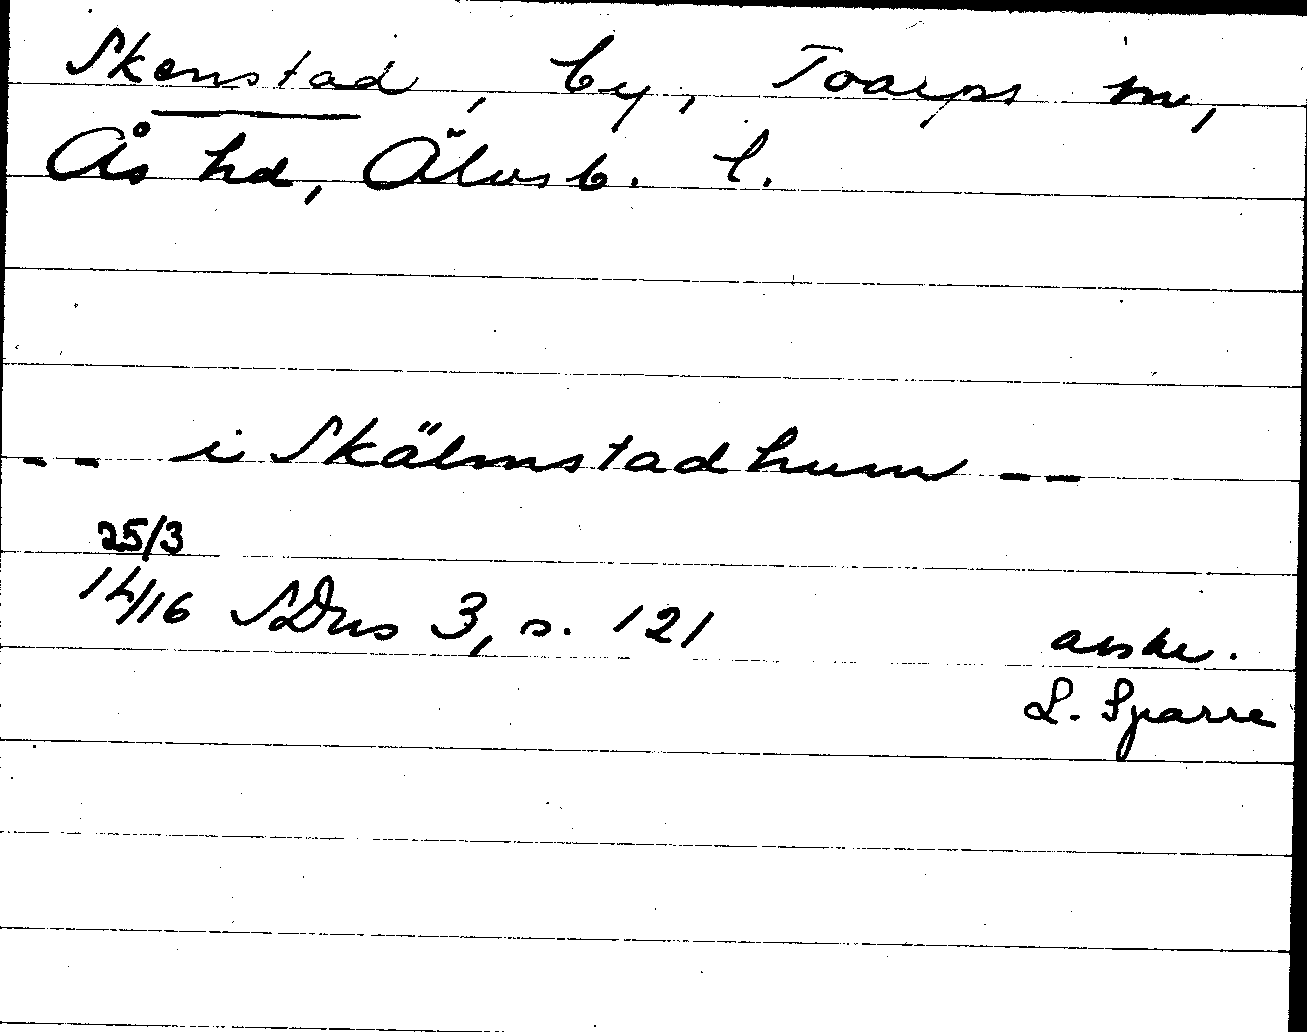 Skenstad, by, Toarps sn,
Ås hd, Älvsb. l.
-- i Skälmstadhum --
25/3
14/16 SDns 3, s. 121
avskr.
L. Sparre